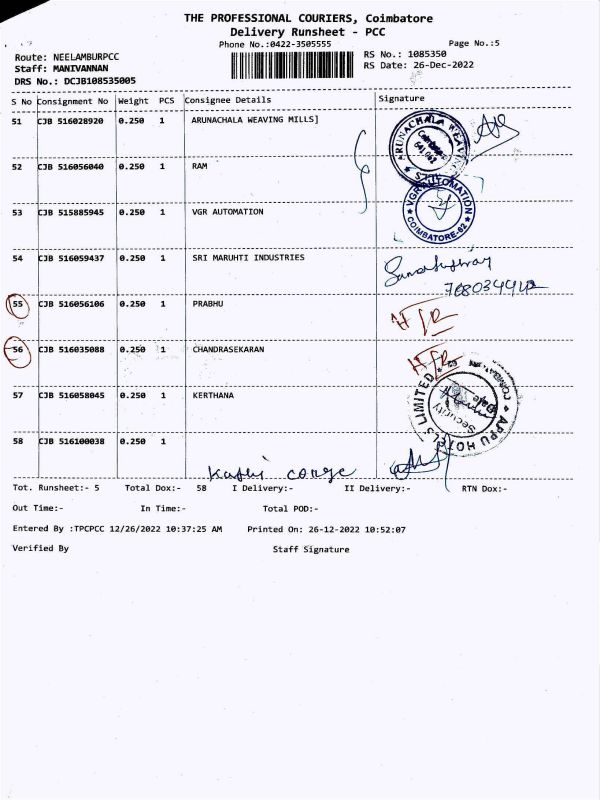 THE PROFESSIONAL COURIERS, Coimbatore
Delivery Runsheet - PCC
Phone No.:0422-3505555
Page No.:5
Route: NEELAMBURPCC
RS No.: 1085350
Staff: MANIVANNAN
RS Date: 26-Dec-2022
DRS No.: DCJB108535005
S No Consignment No Weight PCS Consignee Details Signature
51 CJB 516028920 0.250 1 ARUNACHALA WEAVING MILLS]
52 CJB 516056040 0.250 1 RAM
VGR AUTOMATION
COIMBATORE-62
53 CJB 515885945 0.250 1 VGR AUTOMATION
54 CJB 516059437 0.250 1 SRI MARUHTI INDUSTRIES
55 CJB 516056106 0.250 1 PRABHU
56 CJB 516035088 0.250 1 CHANDRASEKARAN
57 CJB 516058045 0.250 1 KERTHANA
APPU HOTELS LIMITED
Security
58 CJB 516100038 0.250 1
Tot. Runsheet:- 5 Total Dox:- 58 I Delivery:- II Delivery:- RTN Dox:-
Out Time:- In Time:- Total POD:-
Entered By :TPCPCC 12/26/2022 10:37:25 AM Printed On: 26-12-2022 10:52:07
Verified By Staff Signature